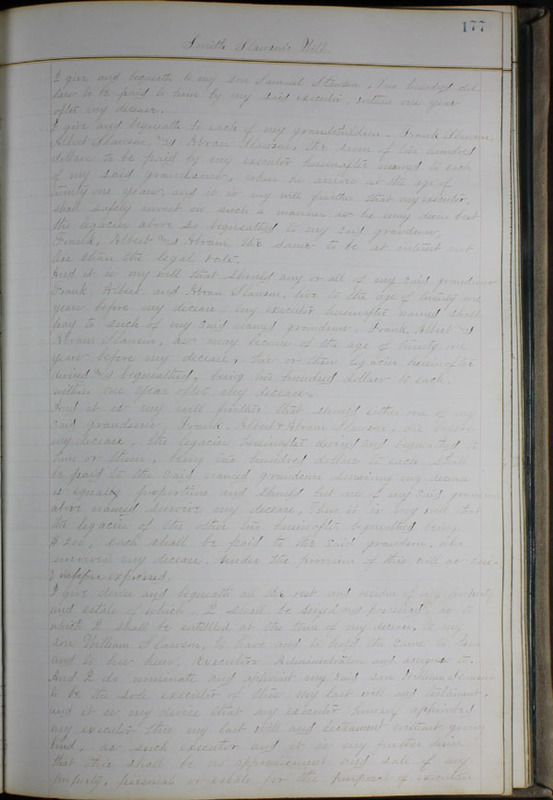 177
Smith Slawson's Will.
I give and bequeath to my son Samuel Slawson, Five hundred dol
lars to be paid to him by my said executor, within one year
after my decease.
I give and bequeath to each of my grandchildren, Frank Slawson,
Albert Slawson and Abram Slawson, the sum of two hundred
dollars to be paid by my executor hereinafter named to each
of my said grandsons, when he arrives at the age of
twenty one years, and it is my will further that my executor,
shall safely invest in such a manner as he may deem best
the legacies above so bequeathed to my said grandsons,
Frank, Albert and Abram, the same to be at interest not
less than the legal rate.
And it is my will that should any or all of my said grandsons
Frank, Albert and Abram Slawson, live to the age of twenty one
years before my decease my executor hereinafter named shall
pay to such of my said named grandsons, Frank, Albert and
Abram Slawson, as may become of the age of twenty one
years before my decease, his or their legacies hereinafter
devised and bequeathed, being two hundred dollars to each,
within one year after my decease.
And it is my will further that should either one of my
said grandsons, Frank, Albert & Abram Slawson, die before
my decease, the legacies hereinafter devised and bequeathed to
him or them, being two hundred dollars to each, shall
be paid to the said named grandsons surviving my decease
in equal proportions and should but one of my said grandsons
above named survive my decease, then it is my will that
the legacies of the other two hereinafter bequeathed being
$200. each shall be paid to the said grandson, who
survives my decease, under the provisions of this will as
before expressed.
I give devise and bequeath all the rest and residue of my property
and estate of which I shall be seized and possessed, or to
which I shall be entitled at the time of my decease, to my
son William Slawson, to have and to hold the same to him
and to his heirs, executors administrators and assigns
And I do nominate and appoint my said son William Slawson
to be the sole executor of this my last will and testament,
and it is my desire that my executor hereby appointed
my executor this my last will and testament without giving
bond, as such executor and it is my further desire
that there shall be no appraisement and sale of my
property, personal or estate for the purpose of